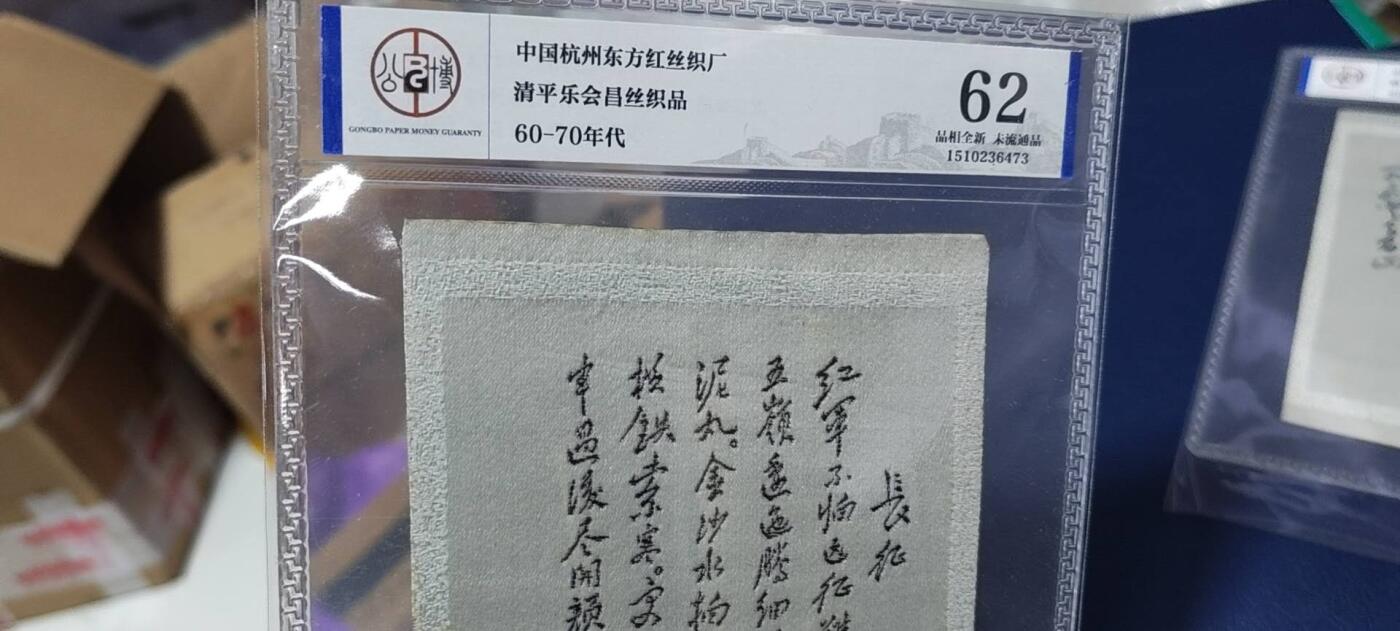 公博
GONGBO PAPER MONEY GUARANTY
中国杭州东方红丝织厂
清平乐会昌丝织品
60-70年代
62
品相全新 未流通品
1510236473
長征
红軍不怕远征
五嶺逶迤腾细
泥丸。金沙水拍
橋鉄索寒。更
軍過後尽開颜